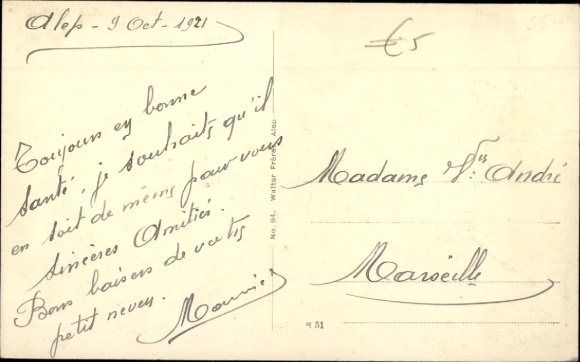 Alep - 9 Oct - 1921
€5
Toujours en bonne
santé, je souhaite qu'il
en soit de même pour vous
Sincères Amitiés.
Bons baisers de votre
petit neveu.
Maurice
No. 94. Wattar Frères, Alep
Madame Vve André
Marseille
51